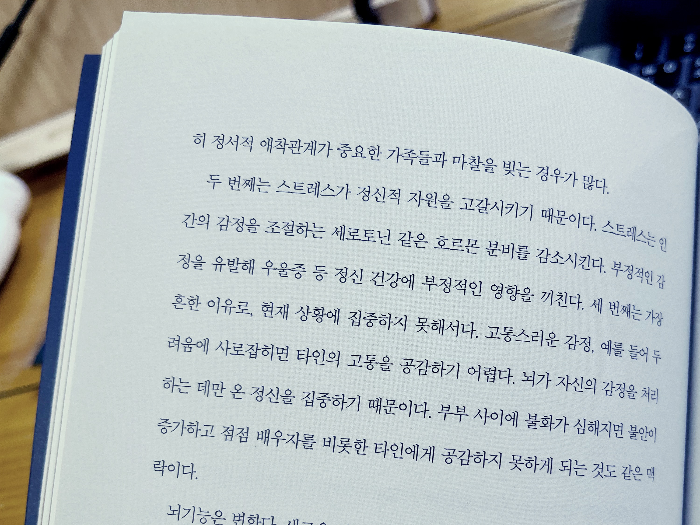 히 정서적 애착관계가 중요한 가족들과 마찰을 빚는 경우가 많다.
두 번째는 스트레스가 정신적 자원을 고갈시키기 때문이다. 스트레스는 인
간의 감정을 조절하는 세로토닌 같은 호르몬 분비를 감소시킨다. 부정적인 감
정을 유발해 우울증 등 정신 건강에 부정적인 영향을 끼친다. 세 번째는 가장
흔한 이유로, 현재 상황에 집중하지 못해서다. 고통스러운 감정, 예를 들어 두
려움에 사로잡히면 타인의 고통을 공감하기 어렵다. 뇌가 자신의 감정을 처리
하는 데만 온 정신을 집중하기 때문이다. 부부 사이에 불화가 심해지면 불안이
증가하고 점점 배우자를 비롯한 타인에게 공감하지 못하게 되는 것도 같은 맥
락이다.
뇌기능은 변한다.